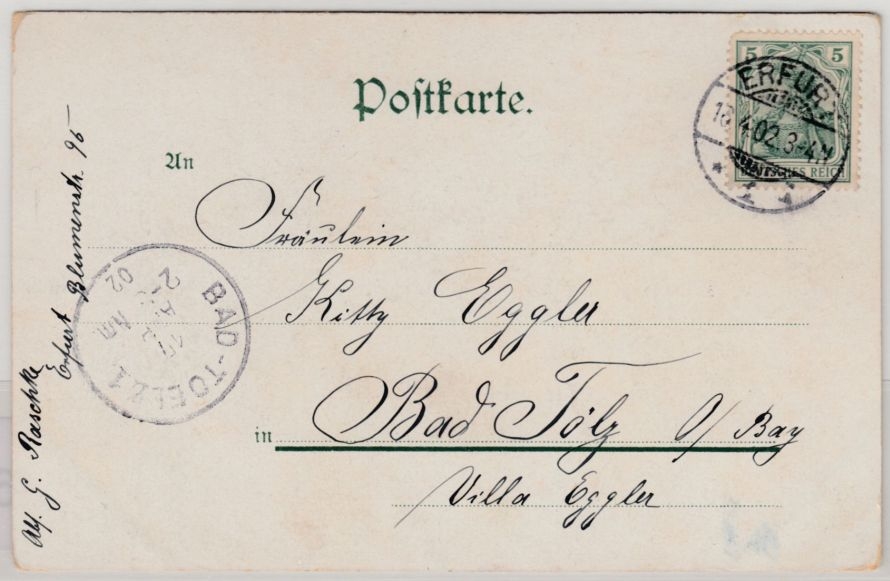 Postkarte.
5 5
ERFURT
18.4.02.3-4N
DEUTSCHES REICH
An
Fräulein
Kitty Eggler
in Bad Tölz O/Bay
Villa Eggler
BAD-TOELZ I
02
Alf. G. Raschke
Erfurt Blumenstr. 95